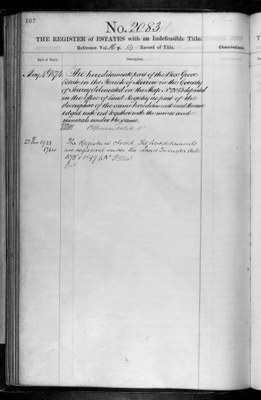 107
No. 2083
THE REGISTER of ESTATES with an Indefeasible Title.
Reference Vol. p. 19 Record of Title.
Date of Entry.
Description.
Observations.
May 4 1874. The hereditaments part of the Grove
Estate in the Parish of Merrow in the County
of Surrey delineated on the Map No. 2083 deposited
in the Office of Land Registry as part of the
description of the same hereditaments and thereon
edged with red Together with the mines and
minerals under the same.
The Register is closed. The hereditaments
are registered under the Land Transfer Acts
1875 & 1897